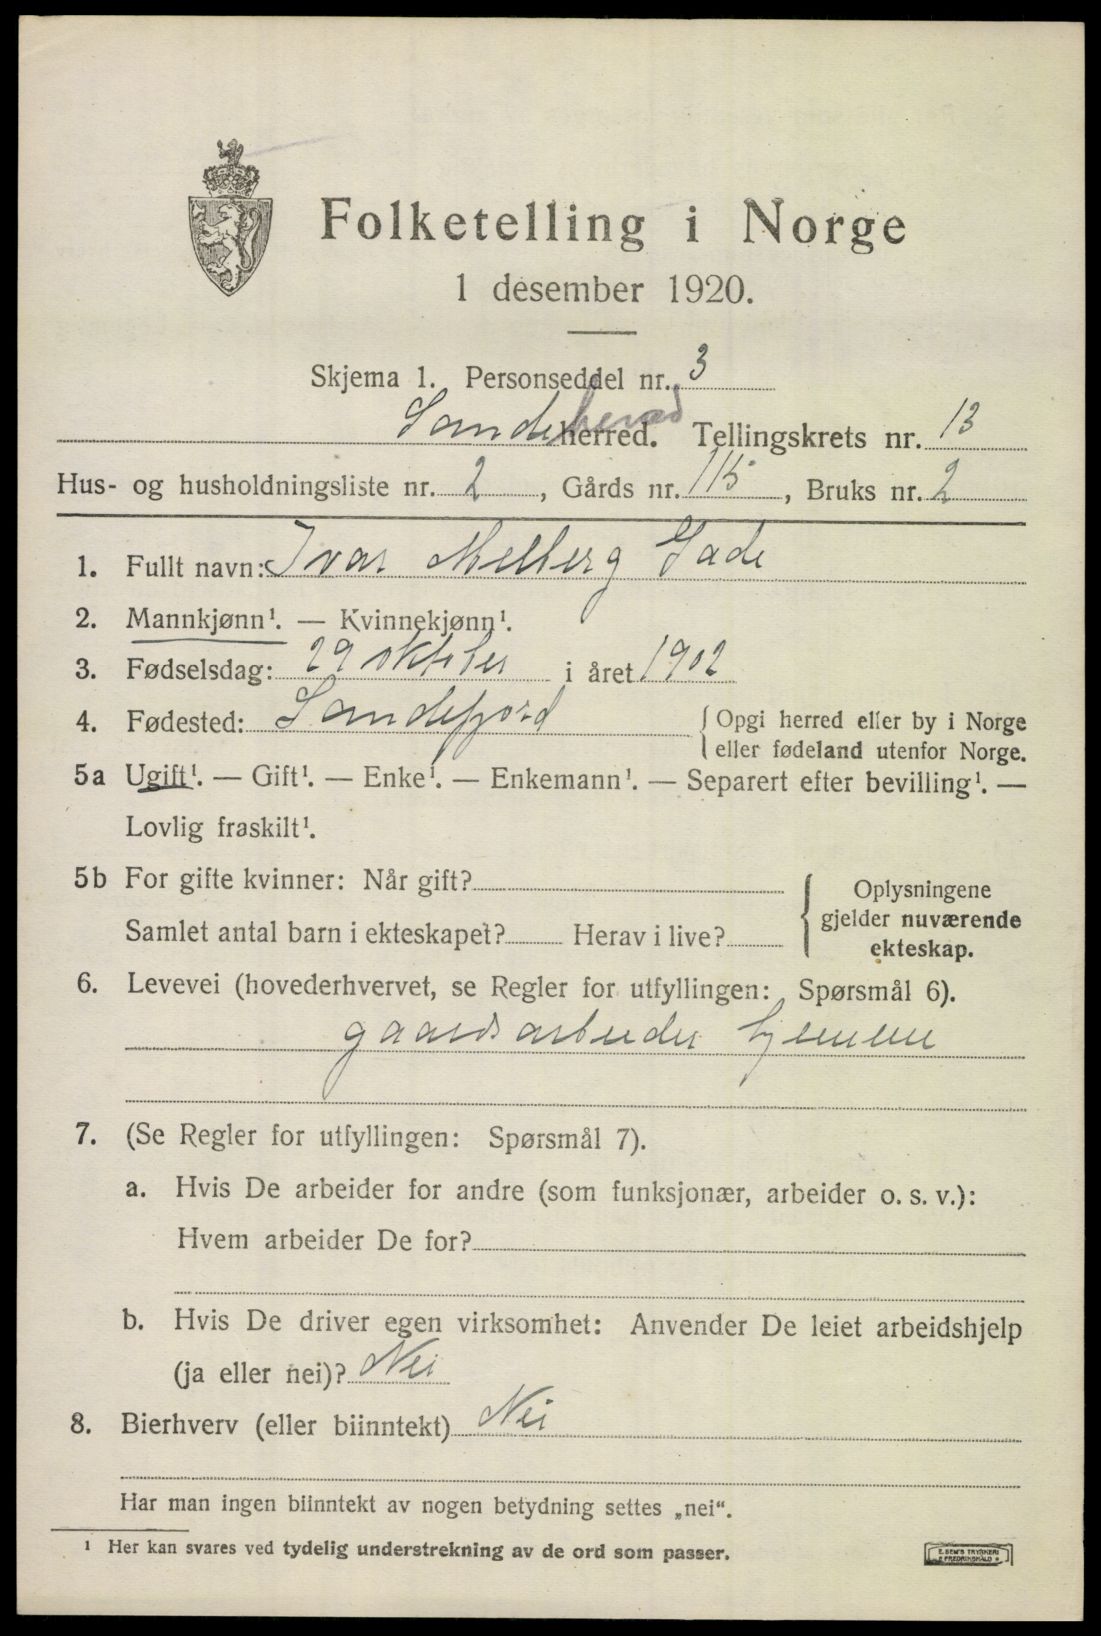 Folketelling i Norge
1 desember 1920.
Skjema 1. Personseddel nr. 3
Sandeherred herred. Tellingskrets nr. 13
Hus- og husholdningsliste nr. 2, Gårds nr. 115, Bruks nr. 2
1. Fullt navn: Ivar Melberg Gade
2. Mannkjønn¹. — Kvinnekjønn¹.
3. Fødselsdag: 29 oktober i året 1902
4. Fødested: Sandefjord {Opgi herred eller by i Norge
eller fødeland utenfor Norge.
5a Ugift¹. — Gift¹. — Enke¹. — Enkemann¹. — Separert efter bevilling¹. —
Lovlig fraskilt¹.
5b For gifte kvinner: Når gift?
Samlet antal barn i ekteskapet? Herav i live?
{Oplysningene
gjelder nuværende
ekteskap.
6. Levevei (hovederhvervet, se Regler for utfyllingen: Spørsmål 6).
gaardsarbeider hjemme
7. (Se Regler for utfyllingen: Spørsmål 7).
a. Hvis De arbeider for andre (som funksjonær, arbeider o. s. v.):
Hvem arbeider De for?
b. Hvis De driver egen virksomhet: Anvender De leiet arbeidshjelp
(ja eller nei)? Nei
8. Bierhverv (eller biinntekt) Nei
Har man ingen biinntekt av nogen betydning settes „nei“.
¹ Her kan svares ved tydelig understrekning av de ord som passer.
E. SEM'S TRYKKERI
FREDRIKSHALD